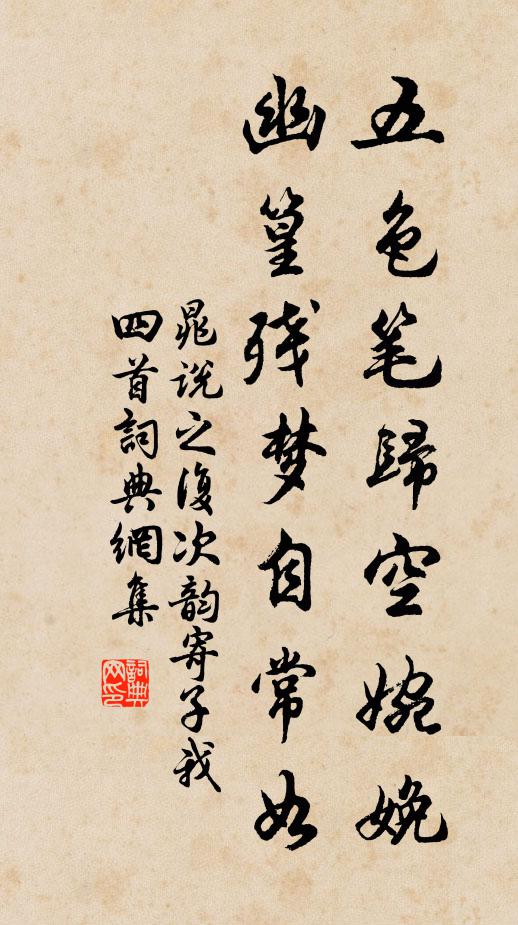 五色笔歸空婉娩
幽篁残梦自常如
晁说之復次韵寄子我
四首詞典網集
詞典网印